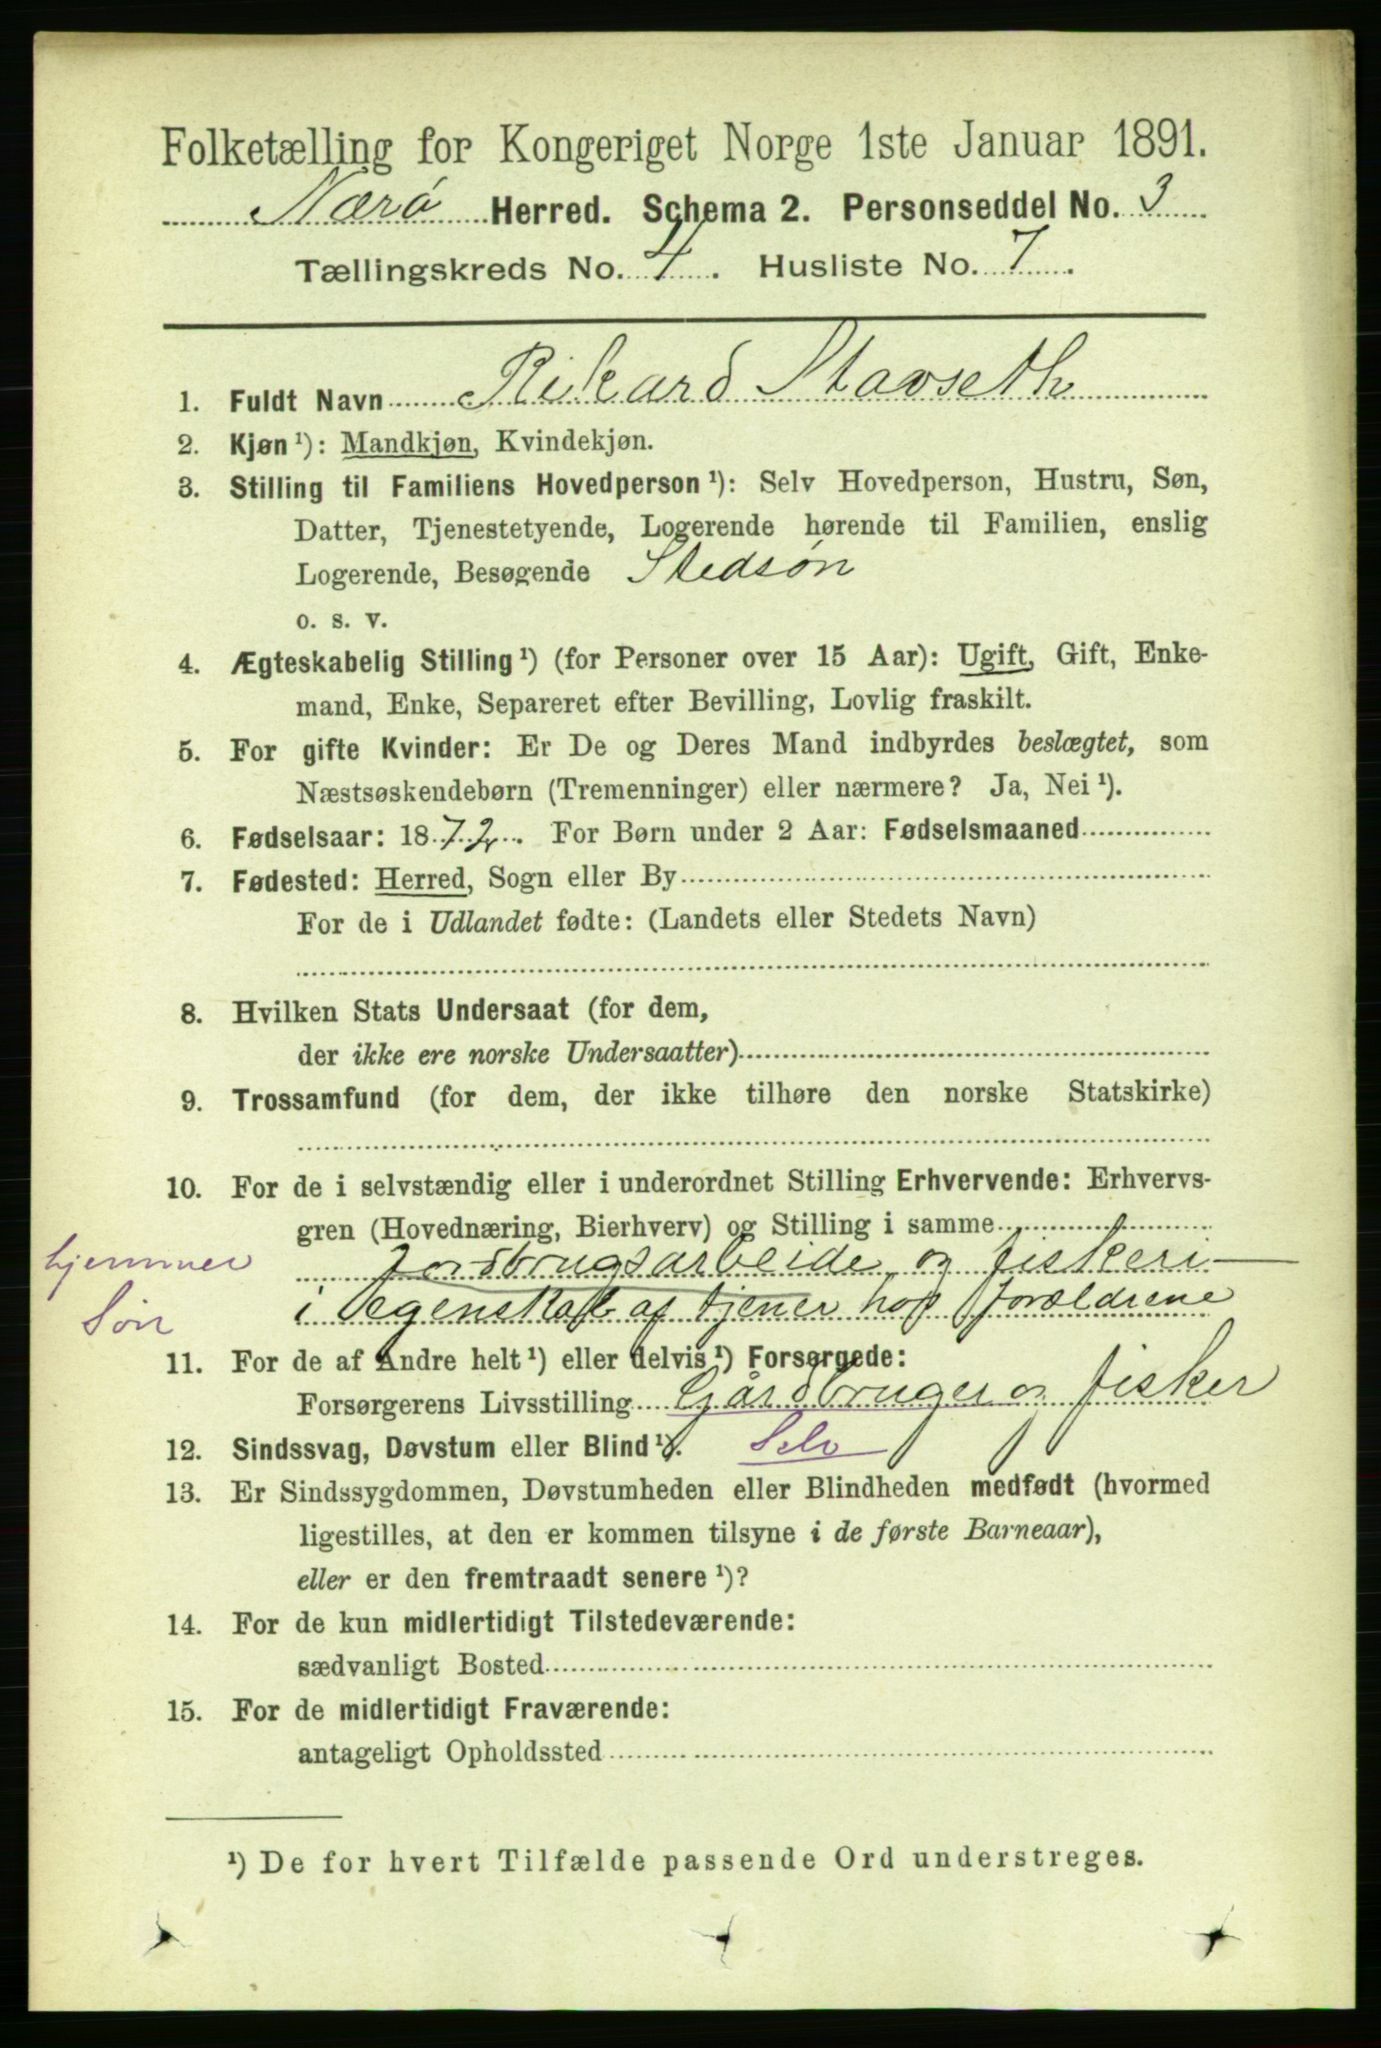 Folketælling for Kongeriget Norge 1ste Januar 1891.
Nærø Herred. Schema 2. Personseddel No. 3
Tællingskreds No. 4. Husliste No. 7.
1. Fuldt Navn Rikard Stavseth
2. Kjøn ¹): Mandkjøn, Kvindekjøn.
3. Stilling til Familiens Hovedperson ¹): Selv Hovedperson, Hustru, Søn,
Datter, Tjenestetyende, Logerende hørende til Familien, enslig
Logerende, Besøgende Stedsøn
o. s. v.
4. Ægteskabelig Stilling ¹) (for Personer over 15 Aar): Ugift, Gift, Enke-
mand, Enke, Separeret efter Bevilling, Lovlig fraskilt.
5. For gifte Kvinder: Er De og Deres Mand indbyrdes beslægtet, som
Næstsøskendebørn (Tremenninger) eller nærmere? Ja, Nei ¹).
6. Fødselsaar: 1872. For Børn under 2 Aar: Fødselsmaaned
7. Fødested: Herred, Sogn eller By
For de i Udlandet fødte: (Landets eller Stedets Navn)
8. Hvilken Stats Undersaat (for dem,
der ikke ere norske Undersaatter)
9. Trossamfund (for dem, der ikke tilhøre den norske Statskirke)
10. For de i selvstændig eller i underordnet Stilling Erhvervende: Erhvervs-
gren (Hovednæring, Bierhverv) og Stilling i samme
hjemmev Jordbrugsarbeide og fiskeri
Søn i egenskab af tjener hos forældrene
11. For de af Andre helt ¹) eller delvis ¹) Forsørgede:
Forsørgerens Livsstilling Gårdbruger og fisker
12. Sindssvag, Døvstum eller Blind ¹). Selv
13. Er Sindssygdommen, Døvstumheden eller Blindheden medfødt (hvormed
ligestilles, at den er kommen tilsyne i de første Barneaar),
eller er den fremtraadt senere ¹)?
14. For de kun midlertidigt Tilstedeværende:
sædvanligt Bosted
15. For de midlertidigt Fraværende:
antageligt Opholdssted
¹) De for hvert Tilfælde passende Ord understreges.